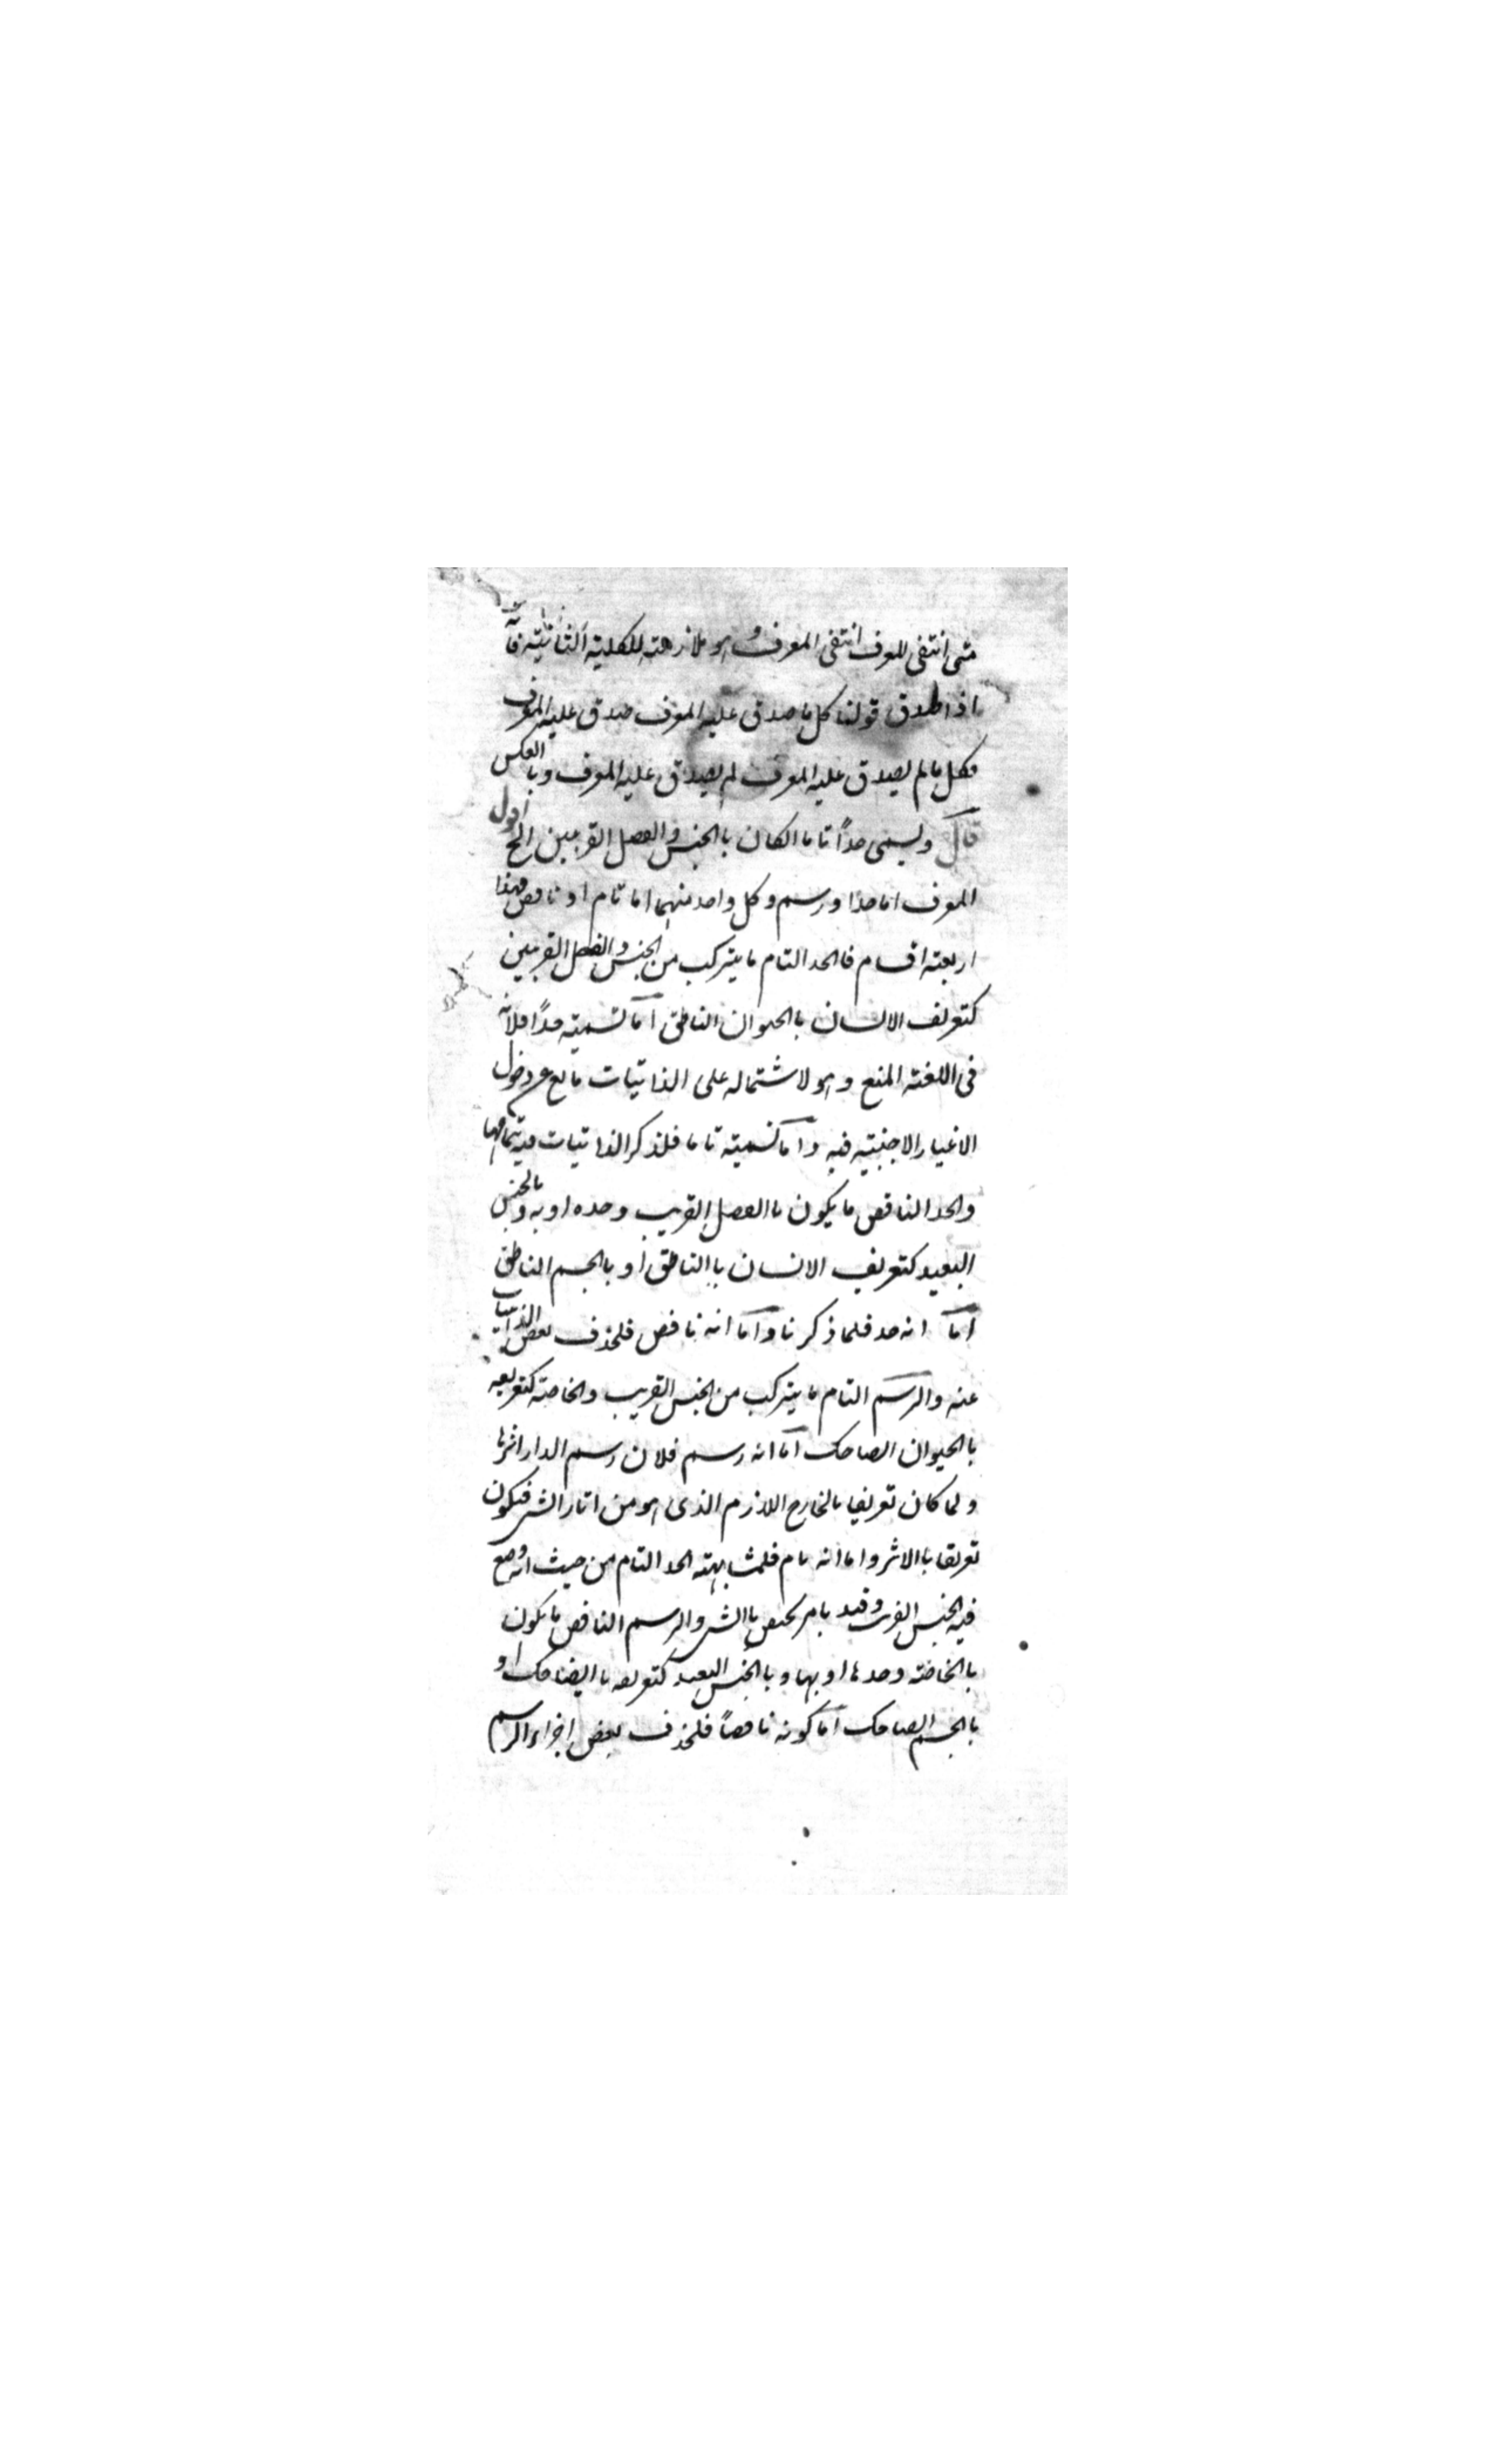 متى انتفى المعرف انتفى المعرف وهو ملازمة للكلية الثانية فانه
اذا صدق قولنا كل ما صدق عليه المعرف صدق عليه المعرف
فكل ما لم يصدق عليه المعرف لم يصدق عليه المعرف وبالعكس
قال ويسمى حداً تاما ان كان بالجنس والفصل القريبين الخ اقول
المعرف اما حد او رسم وكل واحد منهما اما تام او ناقص فهذا
اربعة اقسام فالحد التام ما يتركب من الجنس والفصل القريبين
كتعريف الانسان بالحيوان الناطق اما تسميته حداً فلانه
في اللغة المنع وهو لاشتماله على الذاتيات مانع عن دخول
الاغيار الاجنبية فيه واما تسميته تاما فلذكر الذاتيات فيه بتمامها
والحد الناقص ما يكون باالفصل القريب وحده او به وبالجنس
البعيد كتعريف الانسان باالناطق او بالجسم الناطق
اما انه حد فلما ذكرنا واما انه ناقص فلحذف بعض الذاتيات
عنه والرسم التام ما يتركب من الجنس القريب والخاصة كتعريفه
باالحيوان الضاحك اما انه رسم فلان رسم الدار اثرها
ولما كان تعريفا بالخارج اللازم الذى هو من اثار الشئ فيكون
تعريفا باالاثر واما انه تام فلمشابهته الحد التام من حيث انه وضع
فيه الجنس القريب وقيد بامر يختص باالشئ والرسم الناقص ما يكون
باالخاصة وحدها او بها وباالجنس البعيد كتعريفه باالضاحك او
باالجسم الضاحك اما كونه ناقصاً فلحذف بعض اجزاء الرسم